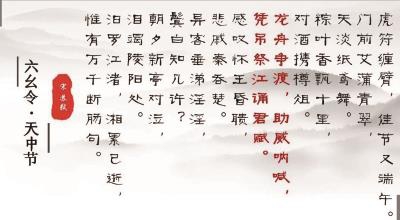 虎符缠臂，佳节又端午。
门前艾蒲青翠，
天淡纸鸢舞。
粽叶香飘十里，
对酒携樽俎。
龙舟争渡，助威呐喊，
凭吊祭江诵君赋。
感叹怀王昏聩，
悲戚秦吞楚。
异客垂涕淫淫，
鬓白知几许？
朝夕新亭对泣，
泪竭陵阳处。
汨罗江渚，湘累已逝，
惟有万千断肠句。
宋 苏轼
六幺令·天中节